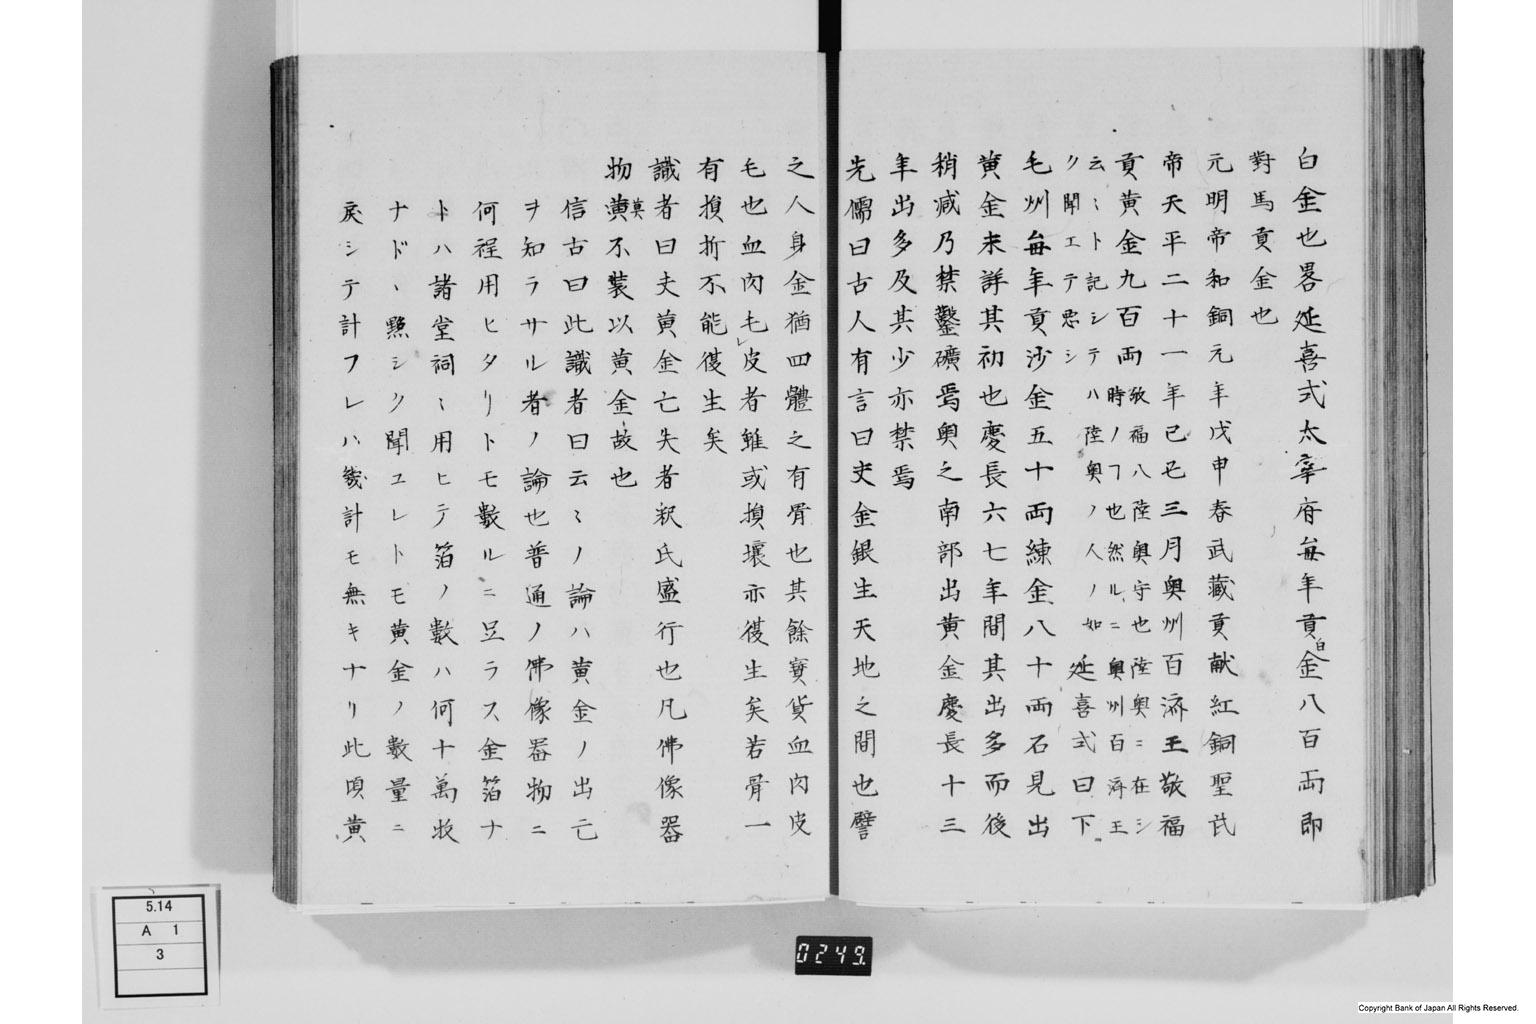 白金也畧延喜式太宰府毎年貢白金八百両即
對馬貢金也
元明帝和銅元年戊申春武藏貢献紅銅聖武
帝天平二十一年己丑三月奥州百済王敬福
貢黄金九百両敬福八陸奥守也陸奥ニ在シ
時ノヿ也然ルニ奥州百済王
云〻ト記シテハ陸奥ノ人ノ如
ク聞エテ悪シ
延喜式曰下
毛州毎年貢沙金五十両練金八十両石見出
黄金未詳其初也慶長六七年間其出多而後
稍減乃禁鑿礦焉奥之南部出黄金慶長十三
年出多及其少亦禁焉
先儒曰古人有言曰夫金銀生天地之間也譬
之人身金猶四體之有骨也其餘寶貨血肉皮
毛也血肉毛皮者雖或損壞亦復生矣若骨一
有損折不能復生矣
識者曰夫黄金亡失者釈氏盛行也凡佛像器
物莫不装以黄金故也
信古曰此識者曰云〻ノ論ハ黄金ノ出亡
ヲ知ラサル者ノ論也普通ノ佛像器物ニ
何程用ヒタリトモ數ルニ足ラス金箔ナ
トハ諸堂祠〻用ヒテ箔ノ數ハ何十萬枚
ナドヽ夥シク聞ユレトモ黄金ノ數量ニ
戻シテ計フレハ幾計モ無キナリ此頃黄
5.14
A 1
3
0249
Copyright Bank of Japan All Rights Reserved.